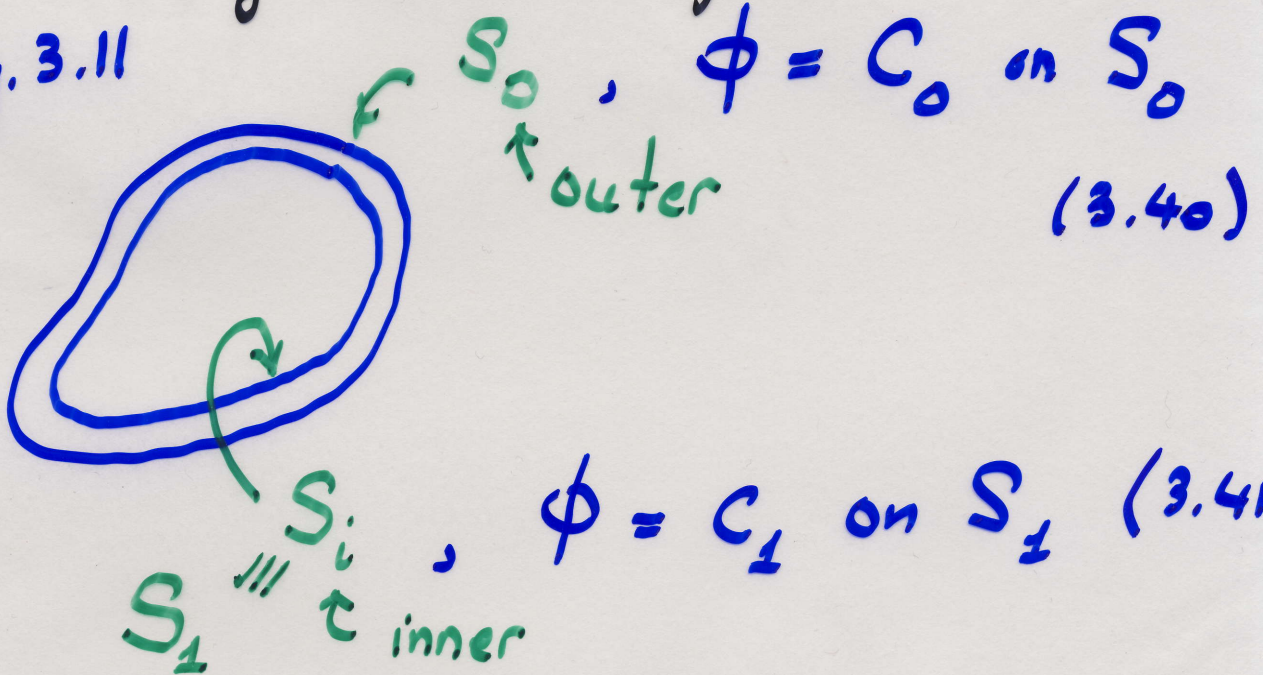 . 3.11
S₀ , ϕ = C₀ on S₀
outer
(3.40)
Sᵢ , ϕ = C₁ on S₁ (3.41
≡
S₁ inner